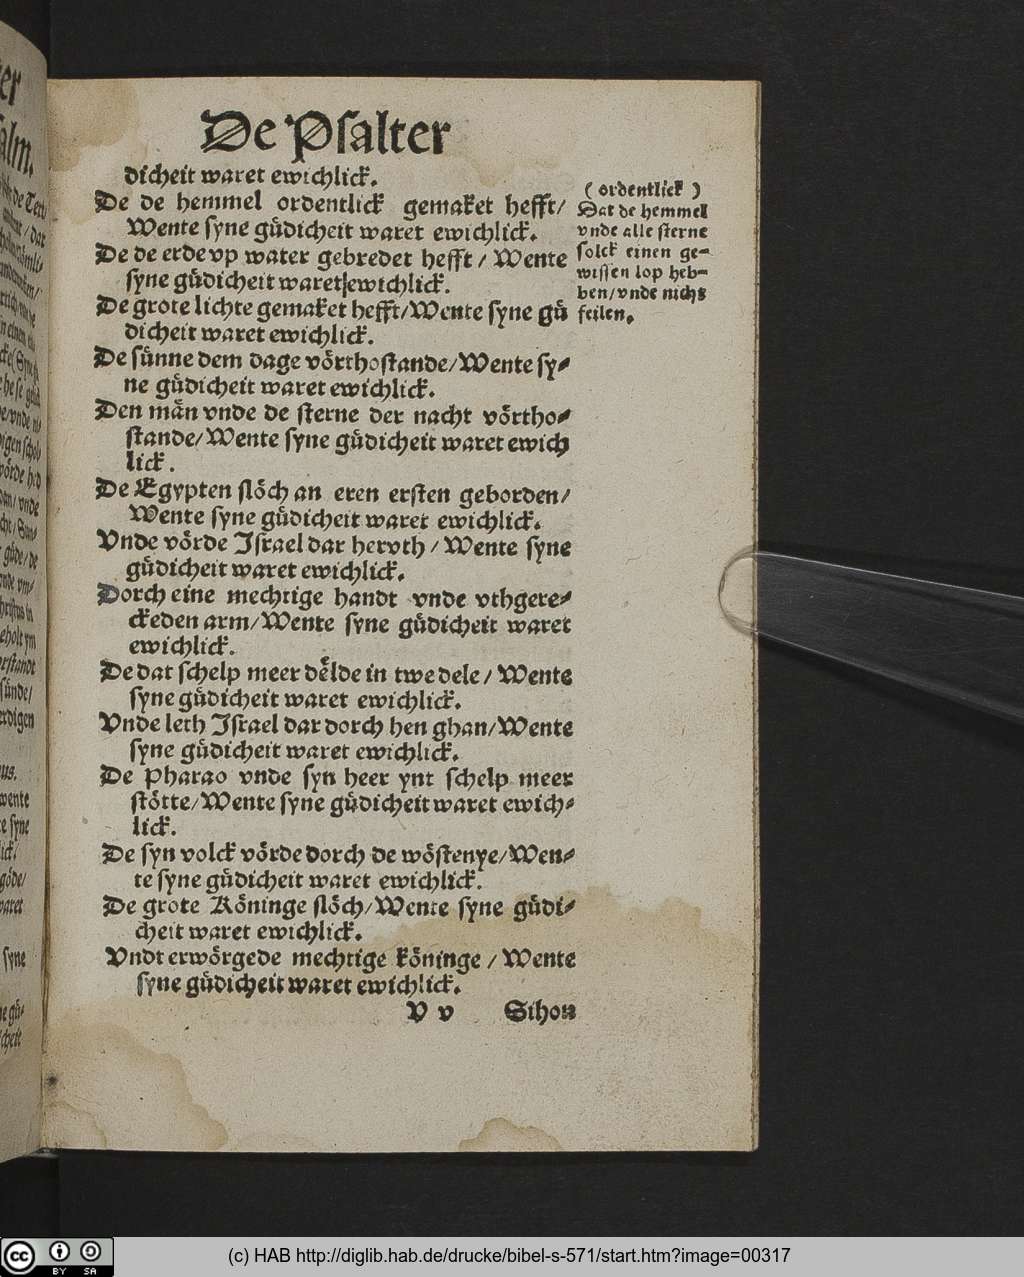 De Psalter
dicheit waret ewichlick.
De de hemmel ordentlick gemaket hefft/
Wente syne güdicheit waret ewichlick.
De de erde vp water gebredet hefft / Wente
syne güdicheit waret ewichlick.
De grote lichte gemaket hefft/Wente syne gü
dicheit waret ewichlick.
De sünne dem dage vörthostande/Wente sy-
ne güdicheit waret ewichlick.
Den män vnde de sterne der nacht vörtho-
stande/Wente syne güdicheit waret ewich
lick.
De Egypten slöch an eren ersten geborden/
Wente syne güdicheit waret ewichlick.
Vnde vörde Israel dar hervth / Wente syne
güdicheit waret ewichlick.
Dorch eine mechtige handt vnde vthgere-
ckeden arm/Wente syne güdicheit waret
ewichlick.
De dat schelp meer dëlde in twe dele / Wente
syne güdicheit waret ewichlick.
Vnde leth Israel dar dorch hen ghan/Wente
syne güdicheit waret ewichlick.
De Pharao vnde syn heer ynt schelp meer
stötte/Wente syne güdicheit waret ewich-
lick.
De syn volck vörde dorch de wöstenye/Wen-
te syne güdicheit waret ewichlick.
De grote Köninge slöch/Wente syne güdi-
cheit waret ewichlick.
Vndt erwörgede mechtige köninge / Wente
syne güdicheit waret ewichlick.
V v Sihon
( ordentlick )
Dat de hemmel
vnde alle sterne
solck einen ge-
wissen lop heb-
ben/vnde nichs
feilen.
(c) HAB http://diglib.hab.de/drucke/bibel-s-571/start.htm?image=00317
cc BY SA